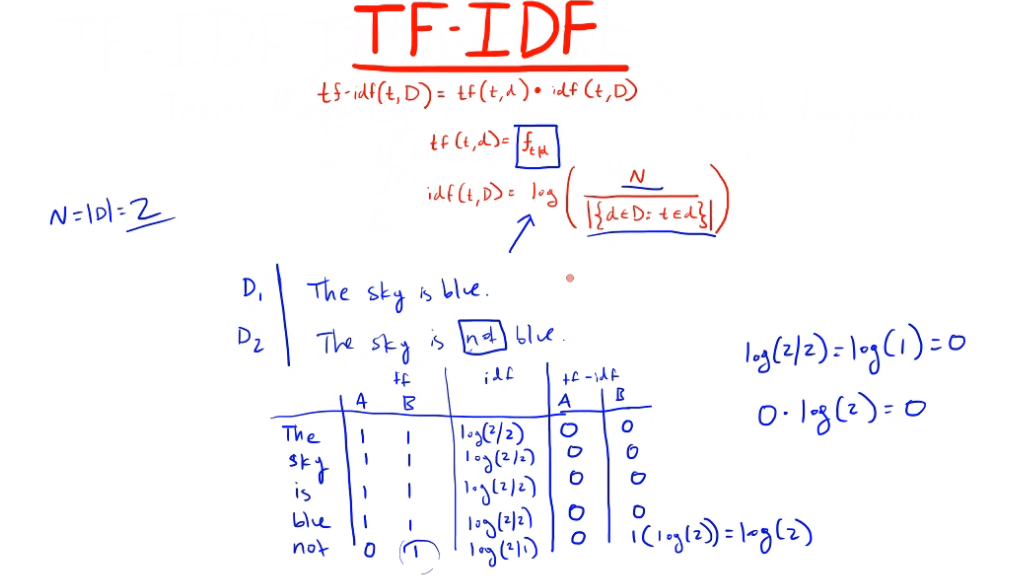 TF-IDF
tf-idf(t,D) = tf(t,d) • idf(t,D)
tf(t,d) = f_{t,d}
idf(t,D) = log( N / |{d∈D: t∈d}| )
N = |D| = 2
D₁ | The sky is blue.
D₂ | The sky is not blue.
log(2/2) = log(1) = 0
0 · log(2) = 0
tf | idf | tf-idf
A B | | A | B
The | 1 1 | log(2/2) | 0 | 0
sky | 1 1 | log(2/2) | 0 | 0
is | 1 1 | log(2/2) | 0 | 0
blue | 1 1 | log(2/2) | 0 | 0
not | 0 1 | log(2/1) | 0 | 1(log(2)) = log(2)